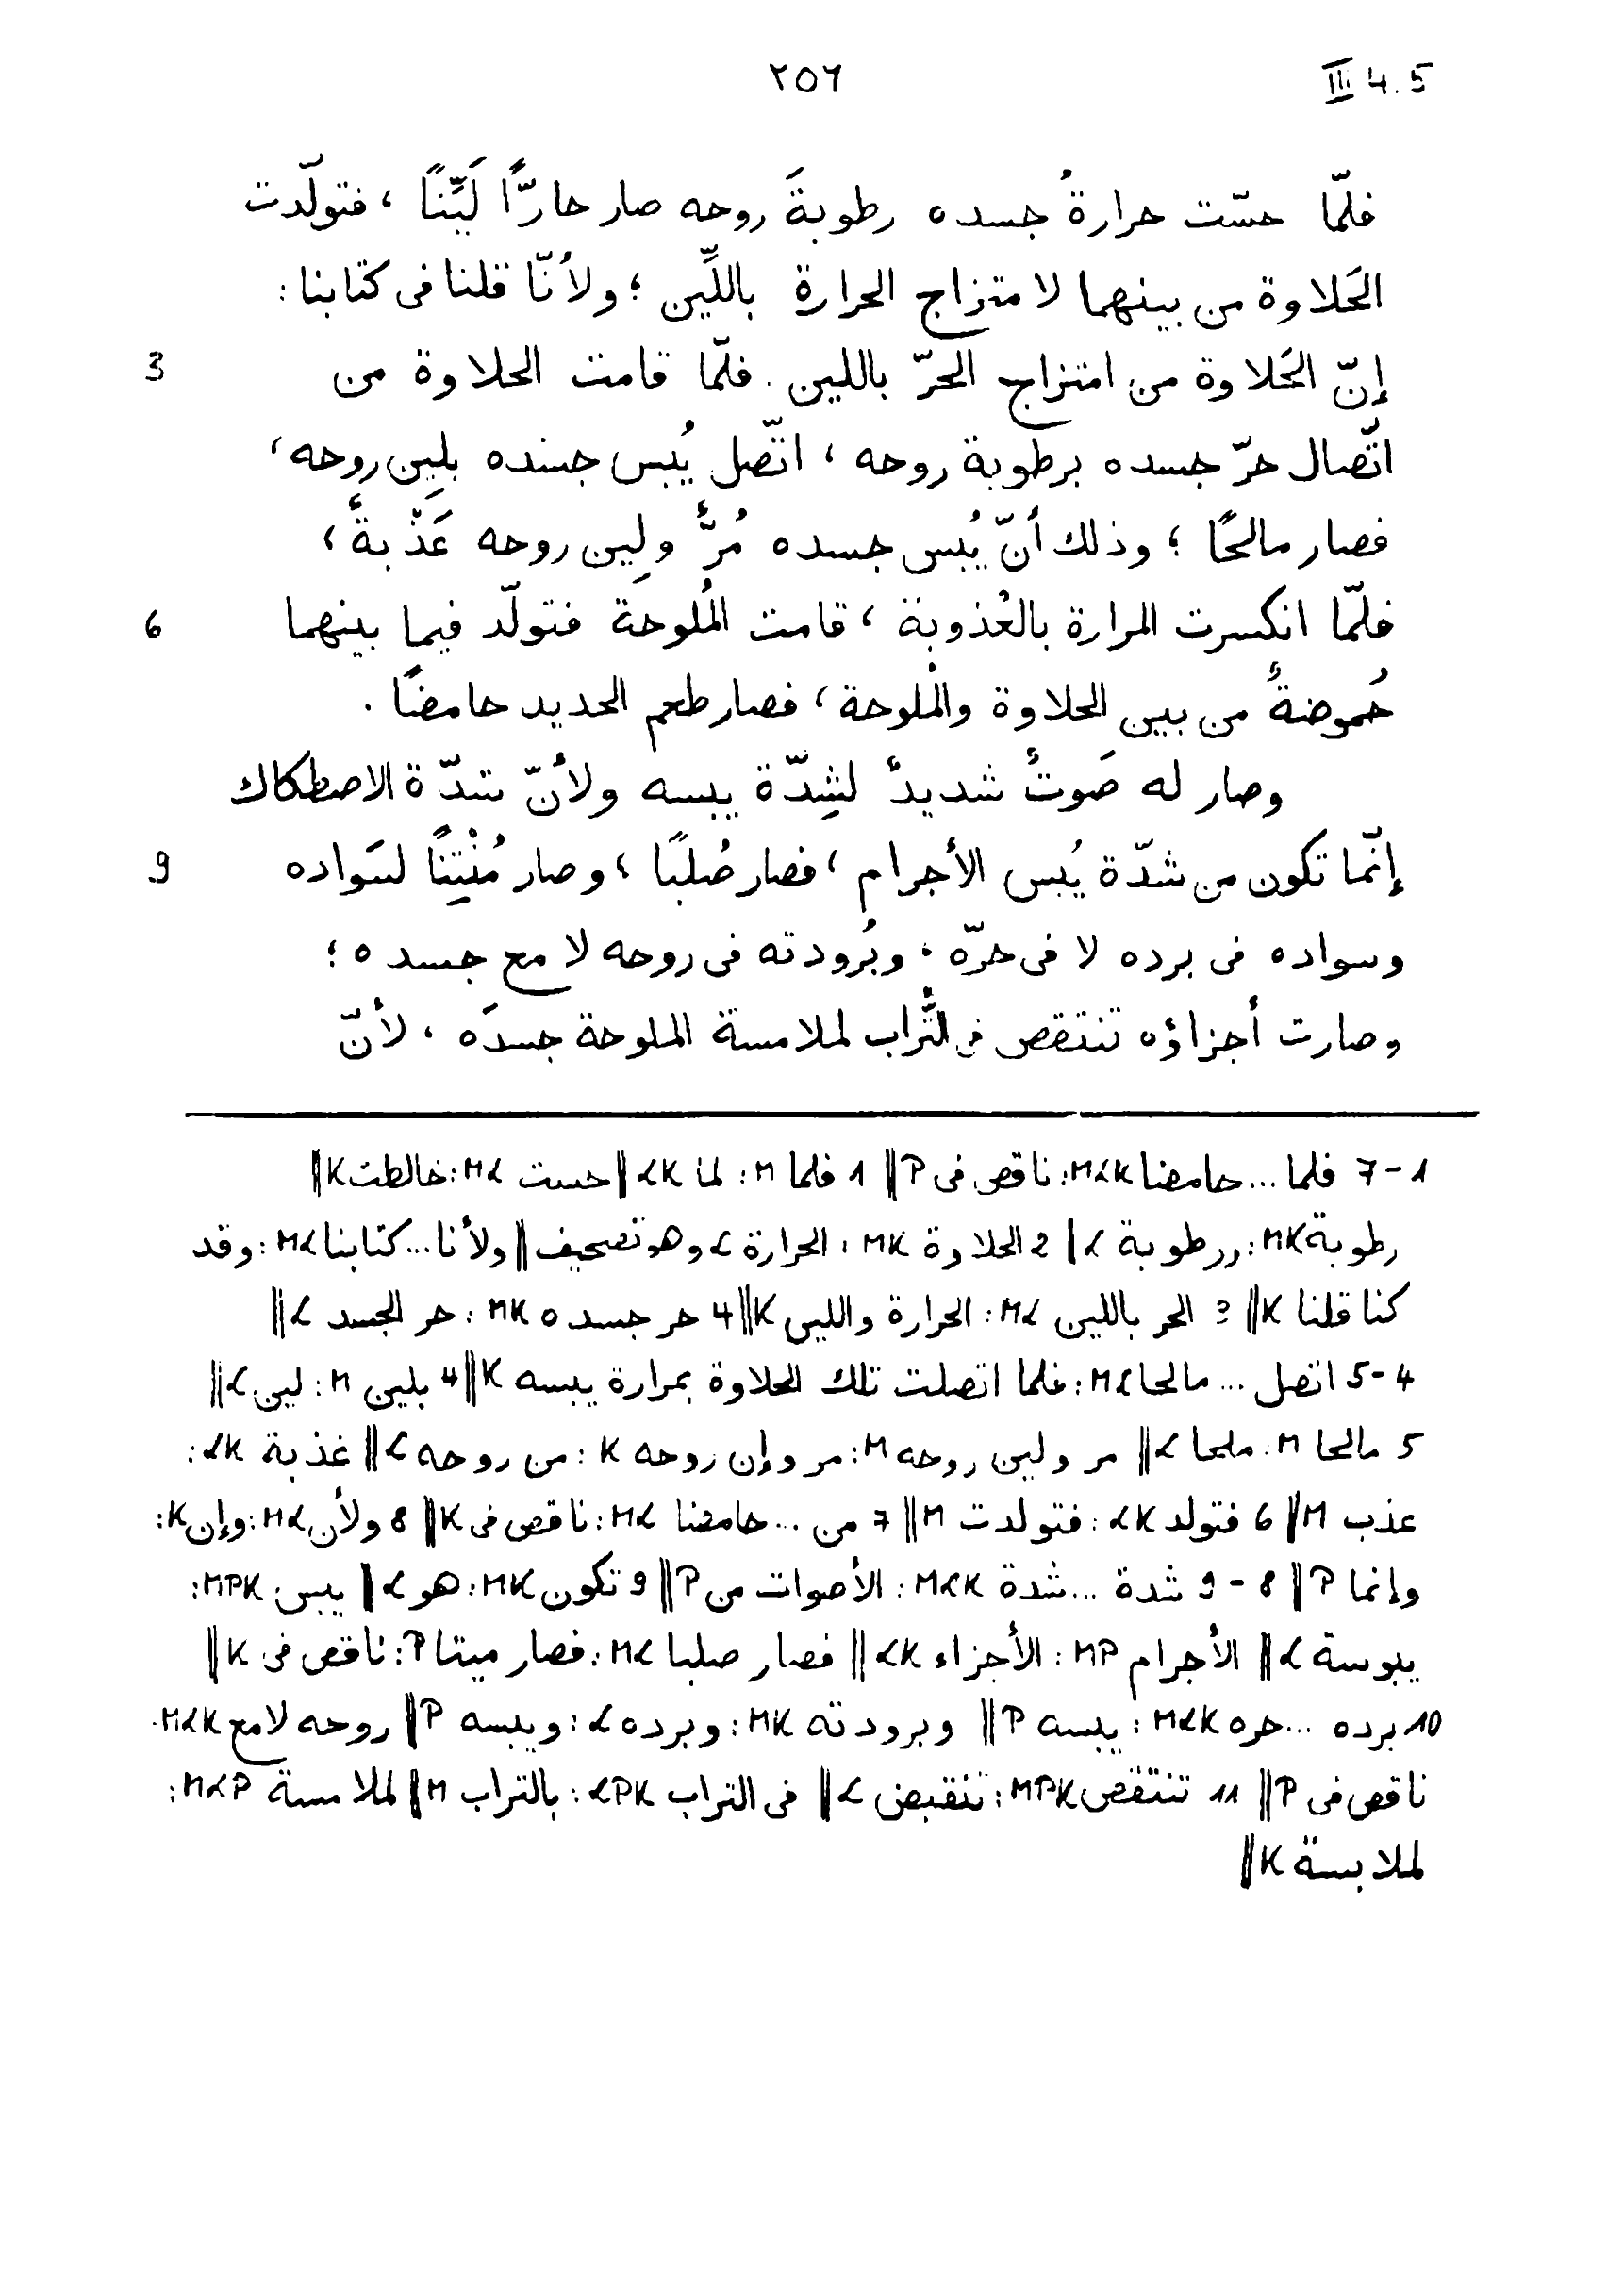 ٢٥٦ III 4.5
فلمّا حسّت حرارةُ جسده رطوبةَ روحه صار حارًّا لَيِّنًا ، فتولّدت
الحَلاوة من بينهما لامتزاج الحرارة باللِّين ؛ ولأنّا قلنا فى كتابنا :
إنّ الحَلاوة من امتزاج الحرّ باللين . فلمّا قامت الحلاوة من 3
اتّصال حرّ جسده برطوبة روحه ، اتّصل يُبس جسده بلِين روحه ،
فصار مالحًا ؛ وذلك أنّ يُبس جسده مُرٌّ ولِين روحه عَذْبةٌ ،
فلمّا انكسرت المرارة بالعُذوبة ، قامت المُلوحة فتولّد فيما بينهما 6
حُموضةٌ من بين الحلاوة والمُلوحة ، فصار طعم الحديد حامضًا .
وصار له صَوتٌ شديدٌ لشِدّة يبسه ولأنّ شدّة الاصطكاك
إنّما تكون من شدّة يُبس الأجرام ، فصار صُلبًا ، وصار مُنْتِنًا لسَواده 9
وسواده فى برده لا فى حرّه . وبُرودته فى روحه لا مع جسده ؛
وصارت أجزاؤه تنتقص فى التُّراب لملامسة الملوحة جسدَه ، لأنّ
1-7 فلما ... حامضا MLK: ناقص فى P || 1 فلما M: لما LK || حست ML: خالطت K ||
رطوبة MK: ورطوبة L || 2 الحلاوة MK: الحرارة L وهو تصحيف || ولأنا ... كتابنا ML: وقد
كنا قلنا K || 3 الحر باللين ML: الحرارة واللين K || 4 حر جسده MK: حر الجسد L ||
4-5 اتصل ... مالحا ML: فلما اتصلت تلك الحلاوة بمرارة يبسه K || 4 بلين M: لين L ||
5 مالحا M: ملحا L || مر ولين روحه M: مر وإن روحه K: من روحه L || عذبة LK:
عذب M || 6 فتولد LK: فتولدت M || 7 من ... حامضا ML: ناقص فى K || 8 ولأن ML: وإن K:
وإنما P || 8-9 شدة ... شدة MLK: الأصوات من P || 9 تكون MK: هو L || يبس MPK:
يبوسة L || الأجرام MP: الأجزاء LK || فصار صلبا ML: فصار ميتا P: ناقص فى K ||
10 برده ... حره MLK: يبسه P || وبرودته MK: وبرده L: ويبسه P || روحه لا مع MLK:
ناقص فى P || 11 تنتقص MPK: تنقبض L || فى التراب LPK: بالتراب M || لملامسة MLP:
لملابسة K ||